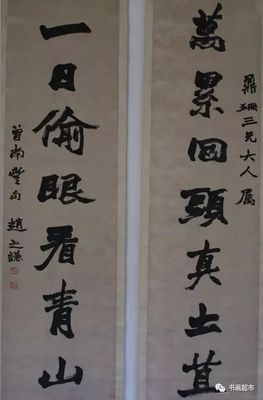 鼎珊三兄大人属
萬累回頭真土苴
一日偷眼看青山
曾南豐句 趙之謙
书画超市